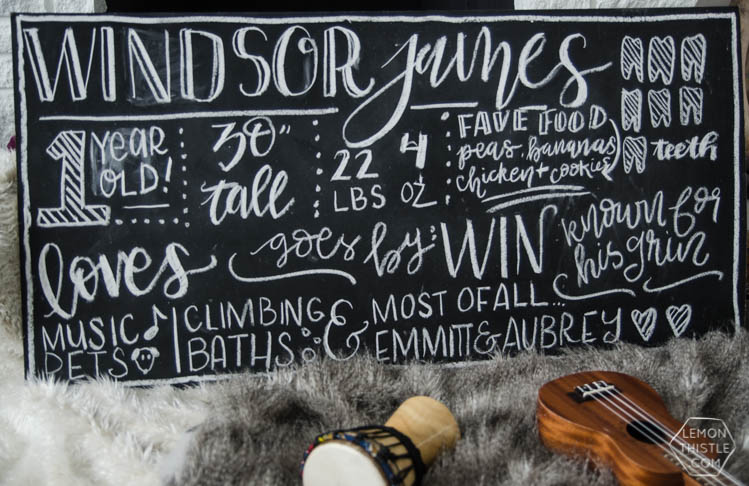 WINDSOR James
1 YEAR OLD!
30" tall
22 LBS 4 OZ
FAVE FOOD
peas, bananas,
chicken + cookies
teeth
loves
goes by: WIN
known for
his grin
MUSIC
PETS
CLIMBING
BATHS
&
MOST OF ALL...
EMMITT & AUBREY
LEMON
THISTLE
.COM